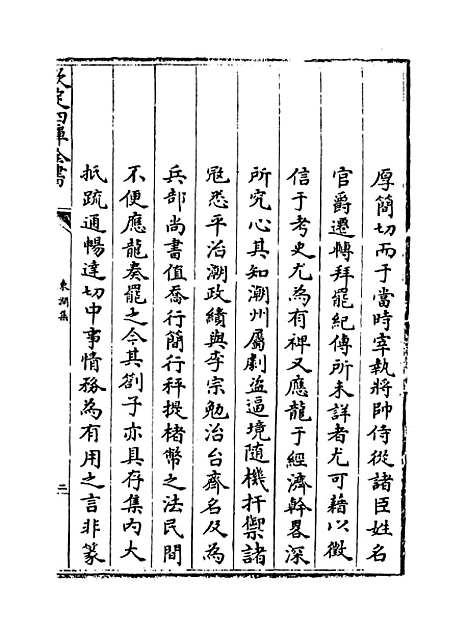 厚簡切而于當時宰執將帥侍從諸臣姓名
官爵遷轉拜罷紀傳所未詳者尤可藉以徵
信于考史尤為有裨又應龍于經濟幹畧深
所究心其知潮州屬劇盜逼境随機扞禦諸
冦悉平治潮政績與李宗勉治台齊名及為
兵部尚書值喬行簡行秤提楮幣之法民間
不便應龍奏罷之今其劄子亦具存集内大
扺疏通暢達切中事情務為有用之言非篆
欽定四庫全書
東澗集
二